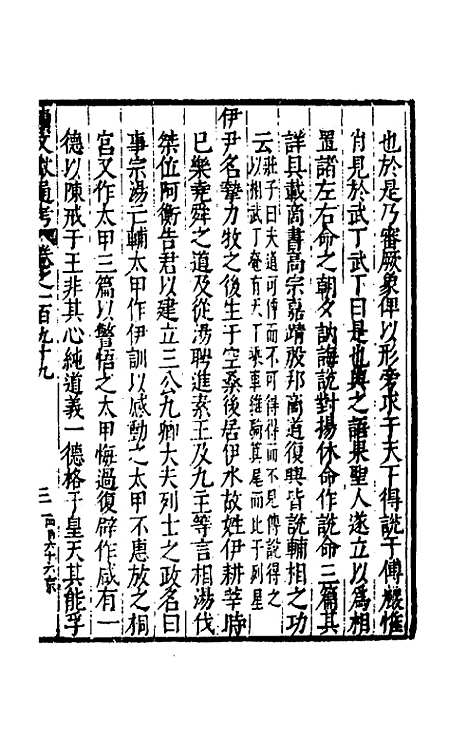 也於是乃審厥象俾以形旁求于天下得說于傅巖惟
肖見於武丁武丁曰是也與之語果聖人遂立以爲相
置諸左右命之朝夕訥誨說對揚休命作說命三篇其
詳具載尚書高宗嘉靖殷邦商道復興皆說輔相之功
云莊子曰夫道可傳而不可得得而不見傅說得之
以相武丁奄有天下乘車維騎箕尾而比于列星
伊尹名摯力牧之後生于空桑後居伊水故姓伊耕莘時
已樂堯舜之道及從湯聘進素王及九主等言相湯伐
桀位阿衡告君以建立三公九卿大夫列士之政名曰
事宗湯亡輔太甲作伊訓以感動之太甲不惠放之桐
宮又作太甲三篇以警悟之太甲悔過復辟作咸有一
德以陳戒于王非其心純道義一德格于皇天其能孚
續文獻通考 卷之一百九十九 三